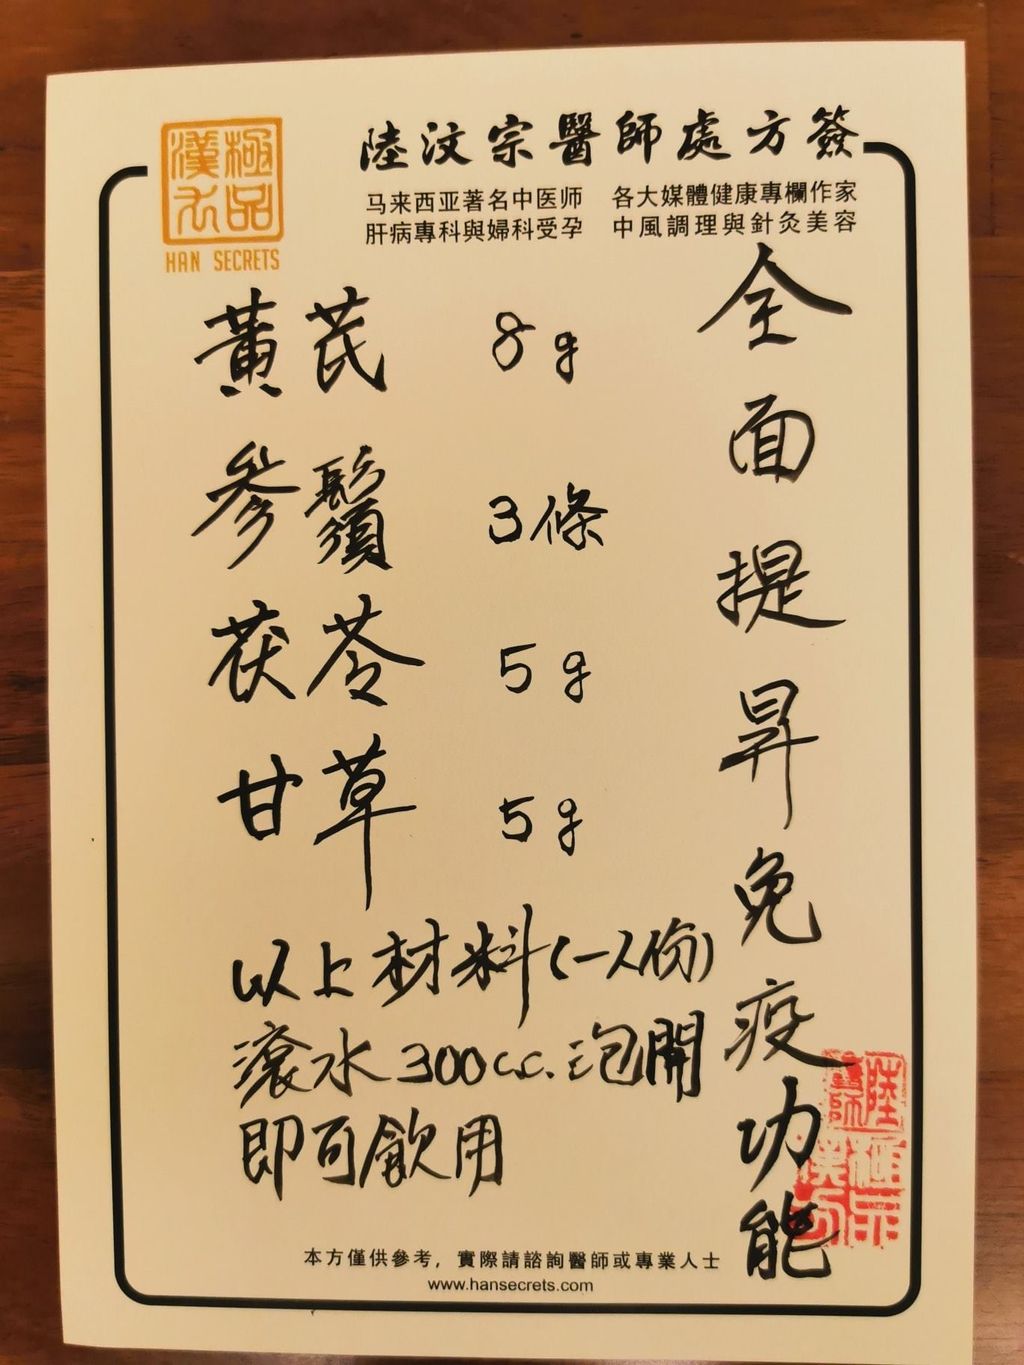 極品
漢方
HAN SECRETS
陸汶宗醫師處方簽
马来西亚著名中医师 各大媒體健康專欄作家
肝病專科與婦科受孕 中風調理與針灸美容
全面提昇免疫功能
黃芪 8g
參鬚 3條
茯苓 5g
甘草 5g
以上材料(一人份)
滾水300c.c.泡開
即可飲用
陸
醫師
極品
漢方
本方僅供參考，實際請諮詢醫師或專業人士
www.hansecrets.com